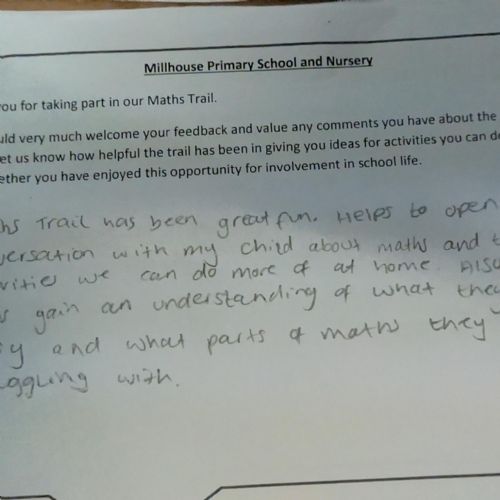 Millhouse Primary School and Nursery
you for taking part in our Maths Trail.
uld very much welcome your feedback and value any comments you have about the
et us know how helpful the trail has been in giving you ideas for activities you can do
ether you have enjoyed this opportunity for involvement in school life.
hs Trail has been great fun. Helps to open
versation with my child about maths and t
vities we can do more of at home. Also
s gain an understanding of what they
y and what parts of maths they
uggling with.